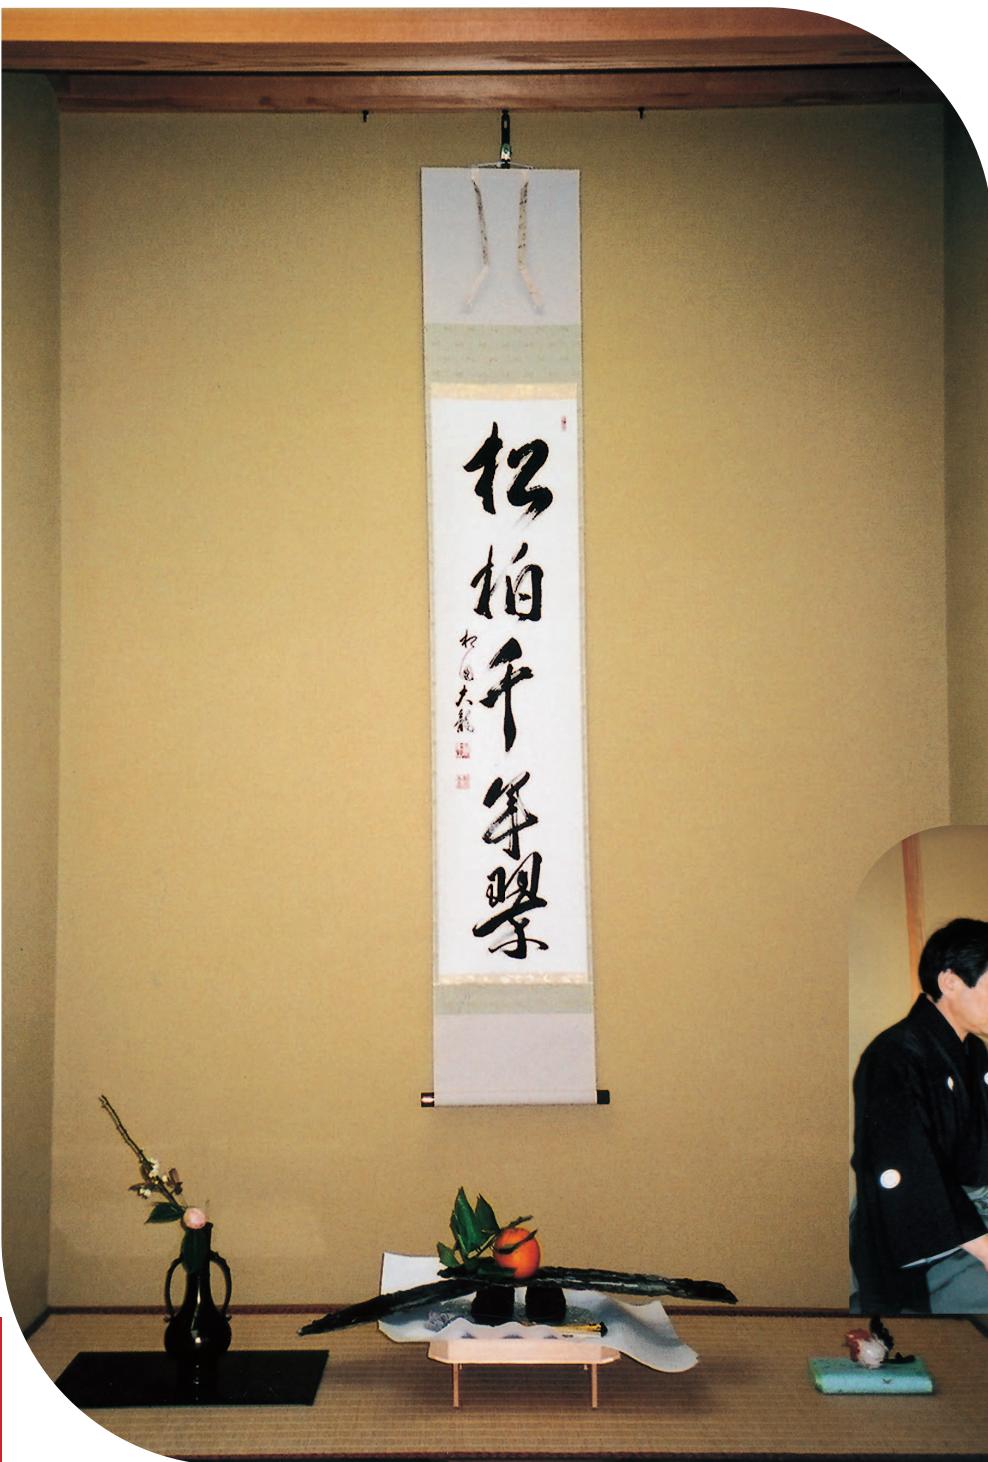 松柏千年翠
大龍